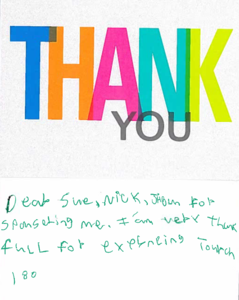 THANK
YOU
Dear Sue, Nick, for
sponseting me. I am very thank
full for expefncing Towrch
180